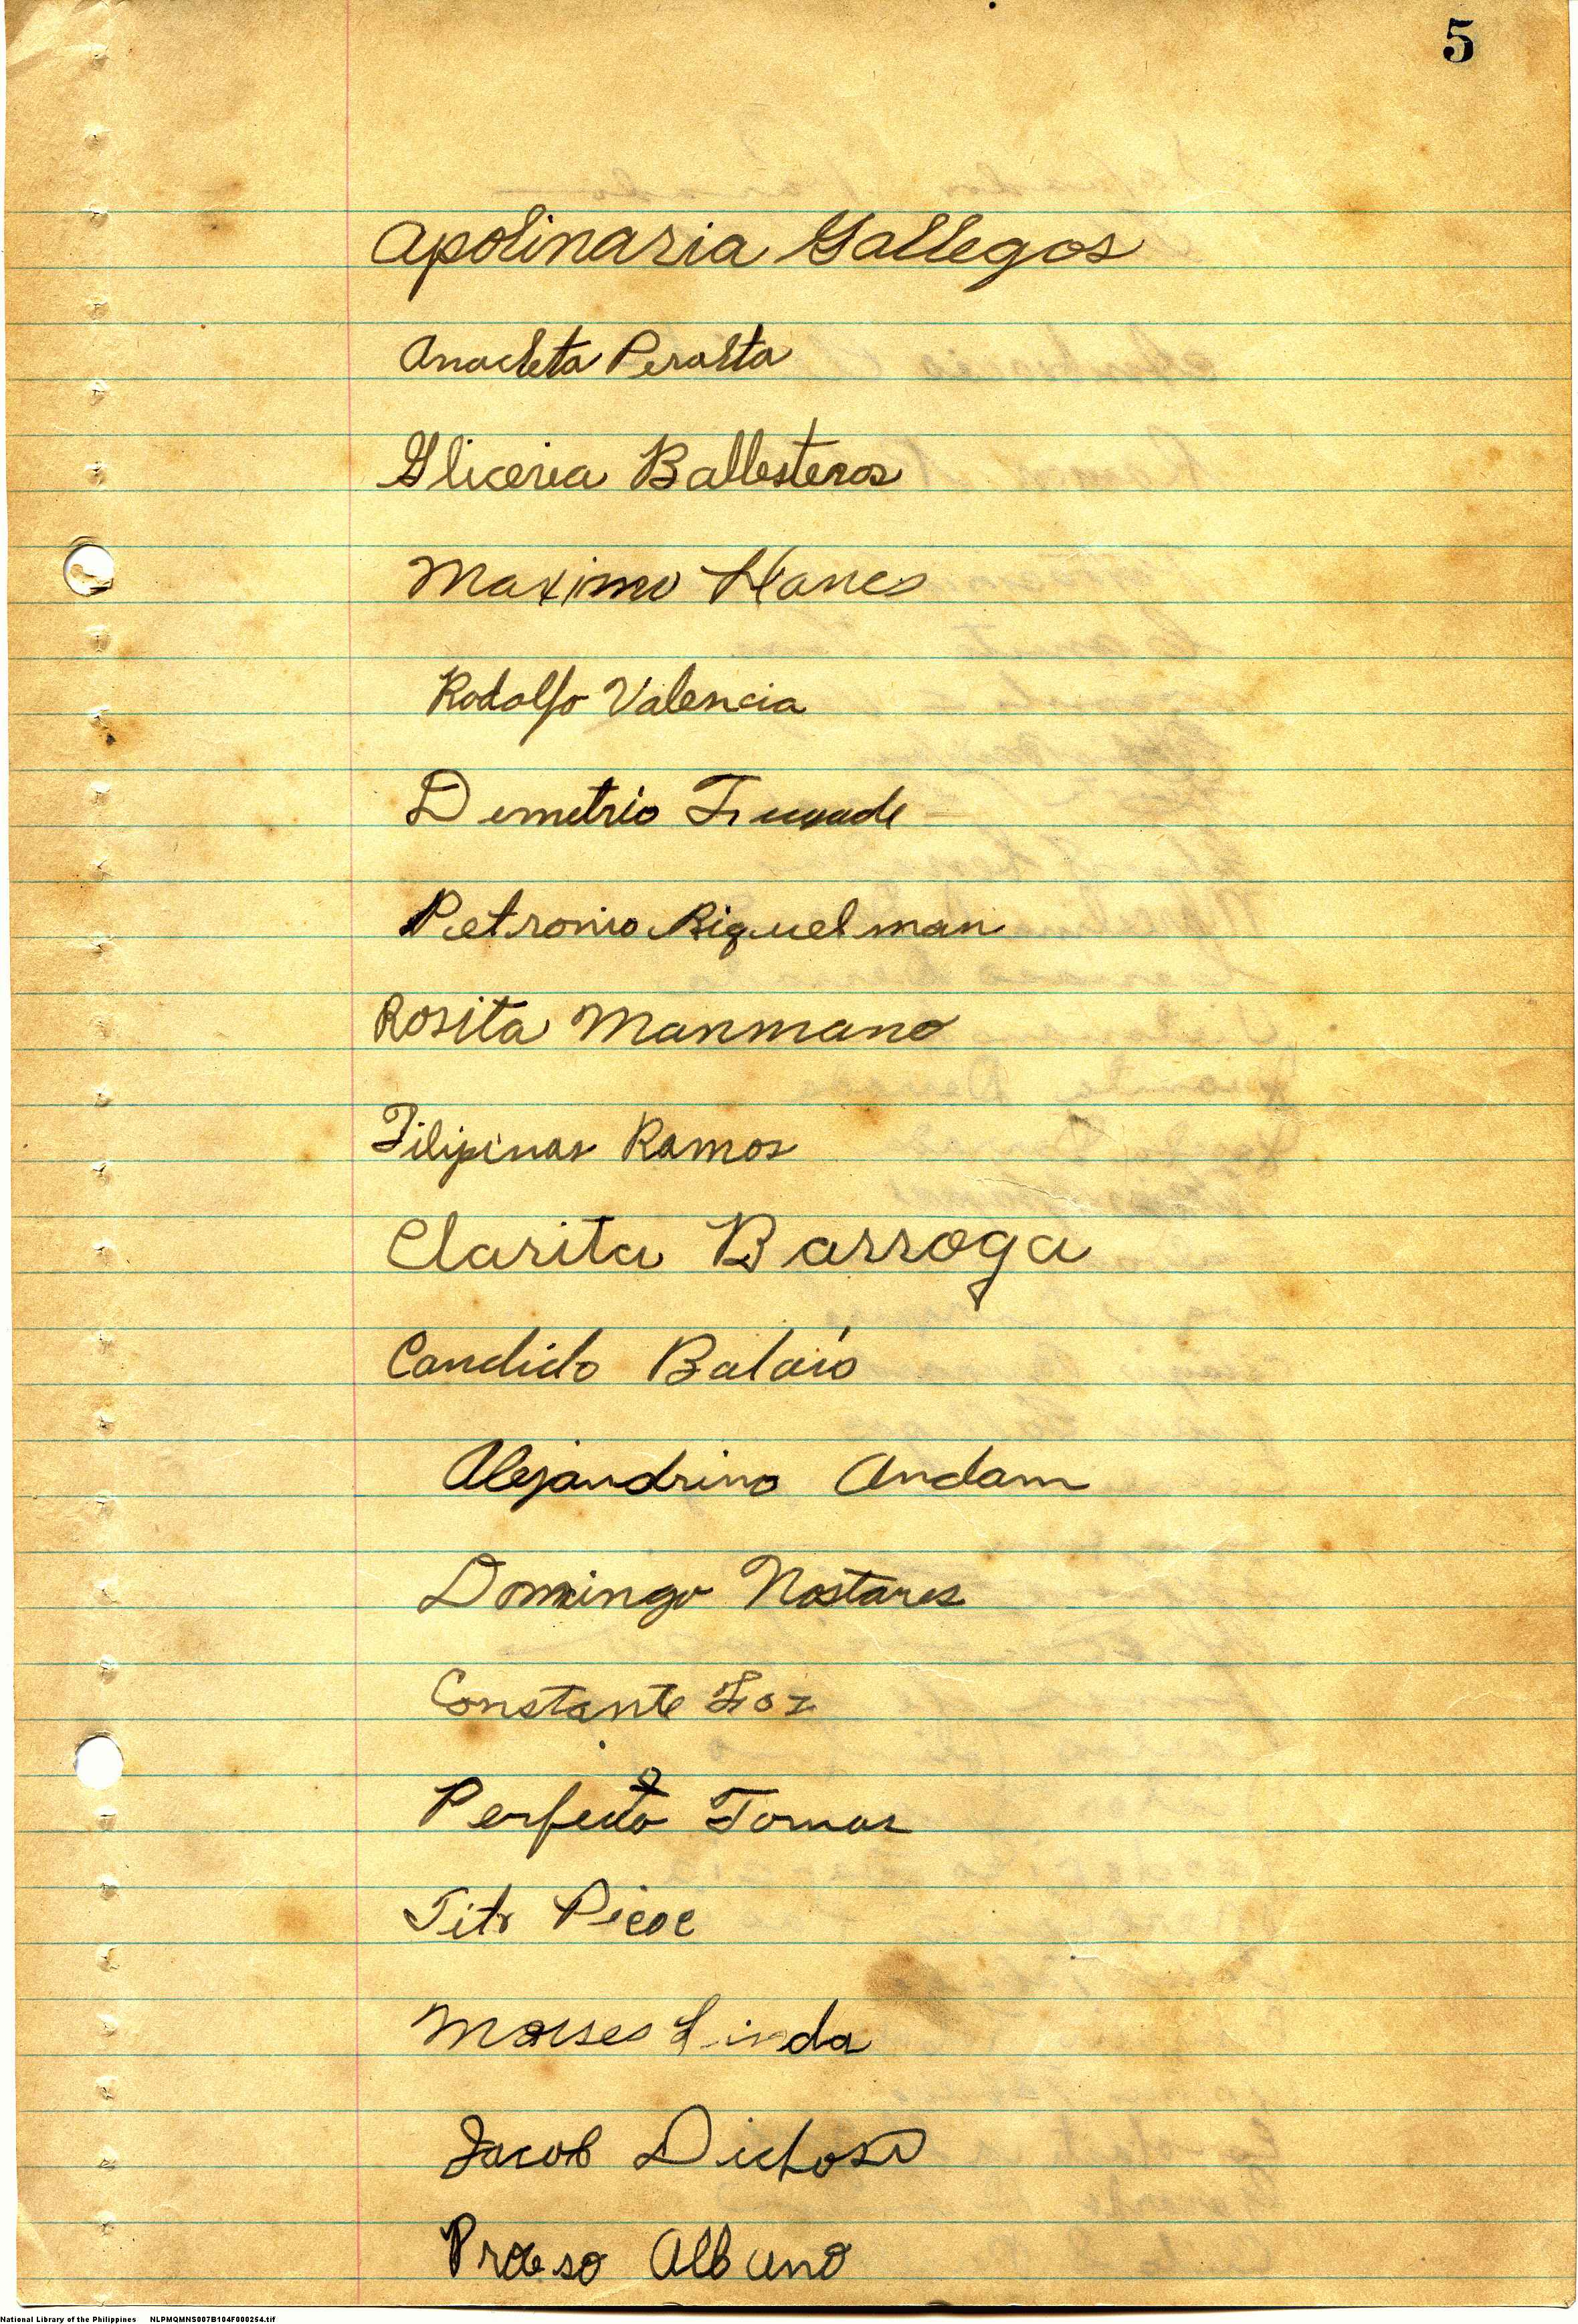 5
Apolinaria Gallegos
Anacleta Peralta
Gliceria Ballesteros
Maximo Llanes
Rodolfo Valencia
Demetrio
Petronio Riquelman
Rosita Manmano
Filipinas Ramos
Clarita Barroga
Candido Balaió
Alejandrino Andam
Domingo Nostares
Constante Foz
Perfecto Tomas
Tito Picoc
Moises Linda
Jacob Dichoso
Proceso Albano
National Library of the Philippines NLPMQMNS007B104F000254.tif